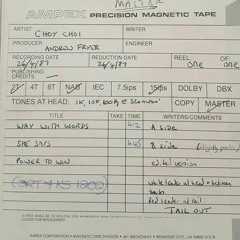 MASTER
AMPEX PRECISION MAGNETIC TAPE
ARTIST CHOY CHOI WRITER
PRODUCER ANDREW FRYER ENGINEER
RECORDING DATE 26/4/87 REDUCTION DATE 26/4/87 REEL: one OF one
PUBLISHING CREDITS
2T 4T 8T NAB IEC 7.5ips 15ips DOLBY DBX
TONES AT HEAD: 1K, 10K, 100Hz @ COPY MASTER
TITLES TAKE TIME WRITERS/COMMENTS
WAY WITH WORDS 4.12 A side
SHE SAYS 4.45 B side
POWER TO WIN version
white leader at head + between
red leader at tail
TAIL OUT
AMPEX CORPORATION • MAGNETIC TAPE DIVISION • 401 BROADWAY • REDWOOD CITY, CA 94063 U.S.A.